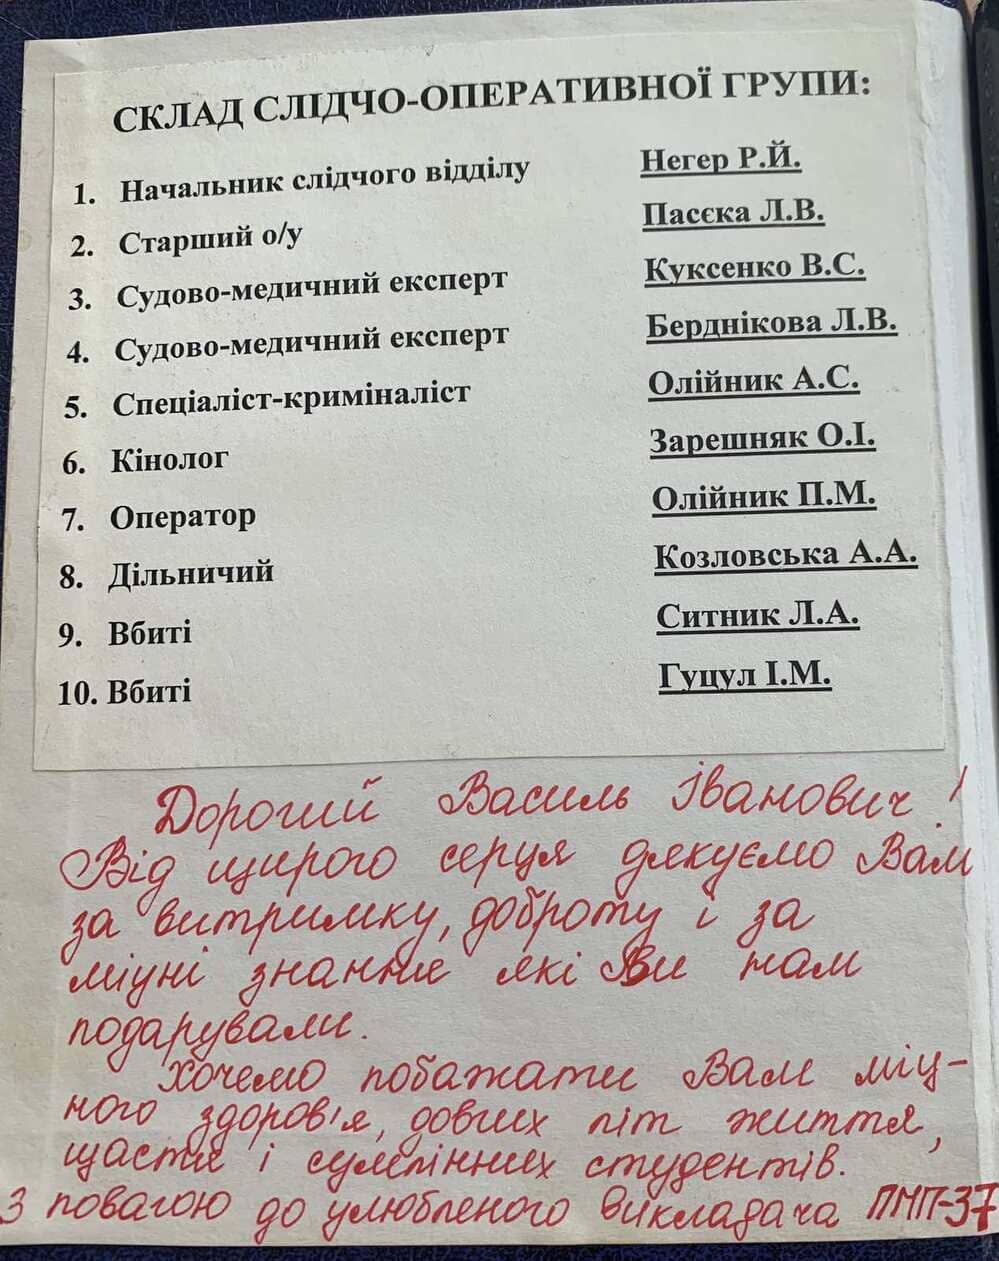 СКЛАД СЛІДЧО-ОПЕРАТИВНОЇ ГРУПИ:
1. Начальник слідчого відділу Негер Р.Й.
2. Старший о/у Пасєка Л.В.
3. Судово-медичний експерт Куксенко В.С.
4. Судово-медичний експерт Берднікова Л.В.
5. Спеціаліст-криміналіст Олійник А.С.
6. Кінолог Зарешняк О.І.
7. Оператор Олійник П.М.
8. Дільничий Козловська А.А.
9. Вбиті Ситник Л.А.
10. Вбиті Гуцул І.М.
Дорогий Василь Іванович!
Від щирого серця дякуємо Вам
за витримку, доброту і за
міцні знання які Ви нам
подарували.
Хочемо побажати Вам міц-
ного здоров'я, довгих літ життя,
щастя і сумлінних студентів.
З повагою до улюбленого викладача ПМП-37